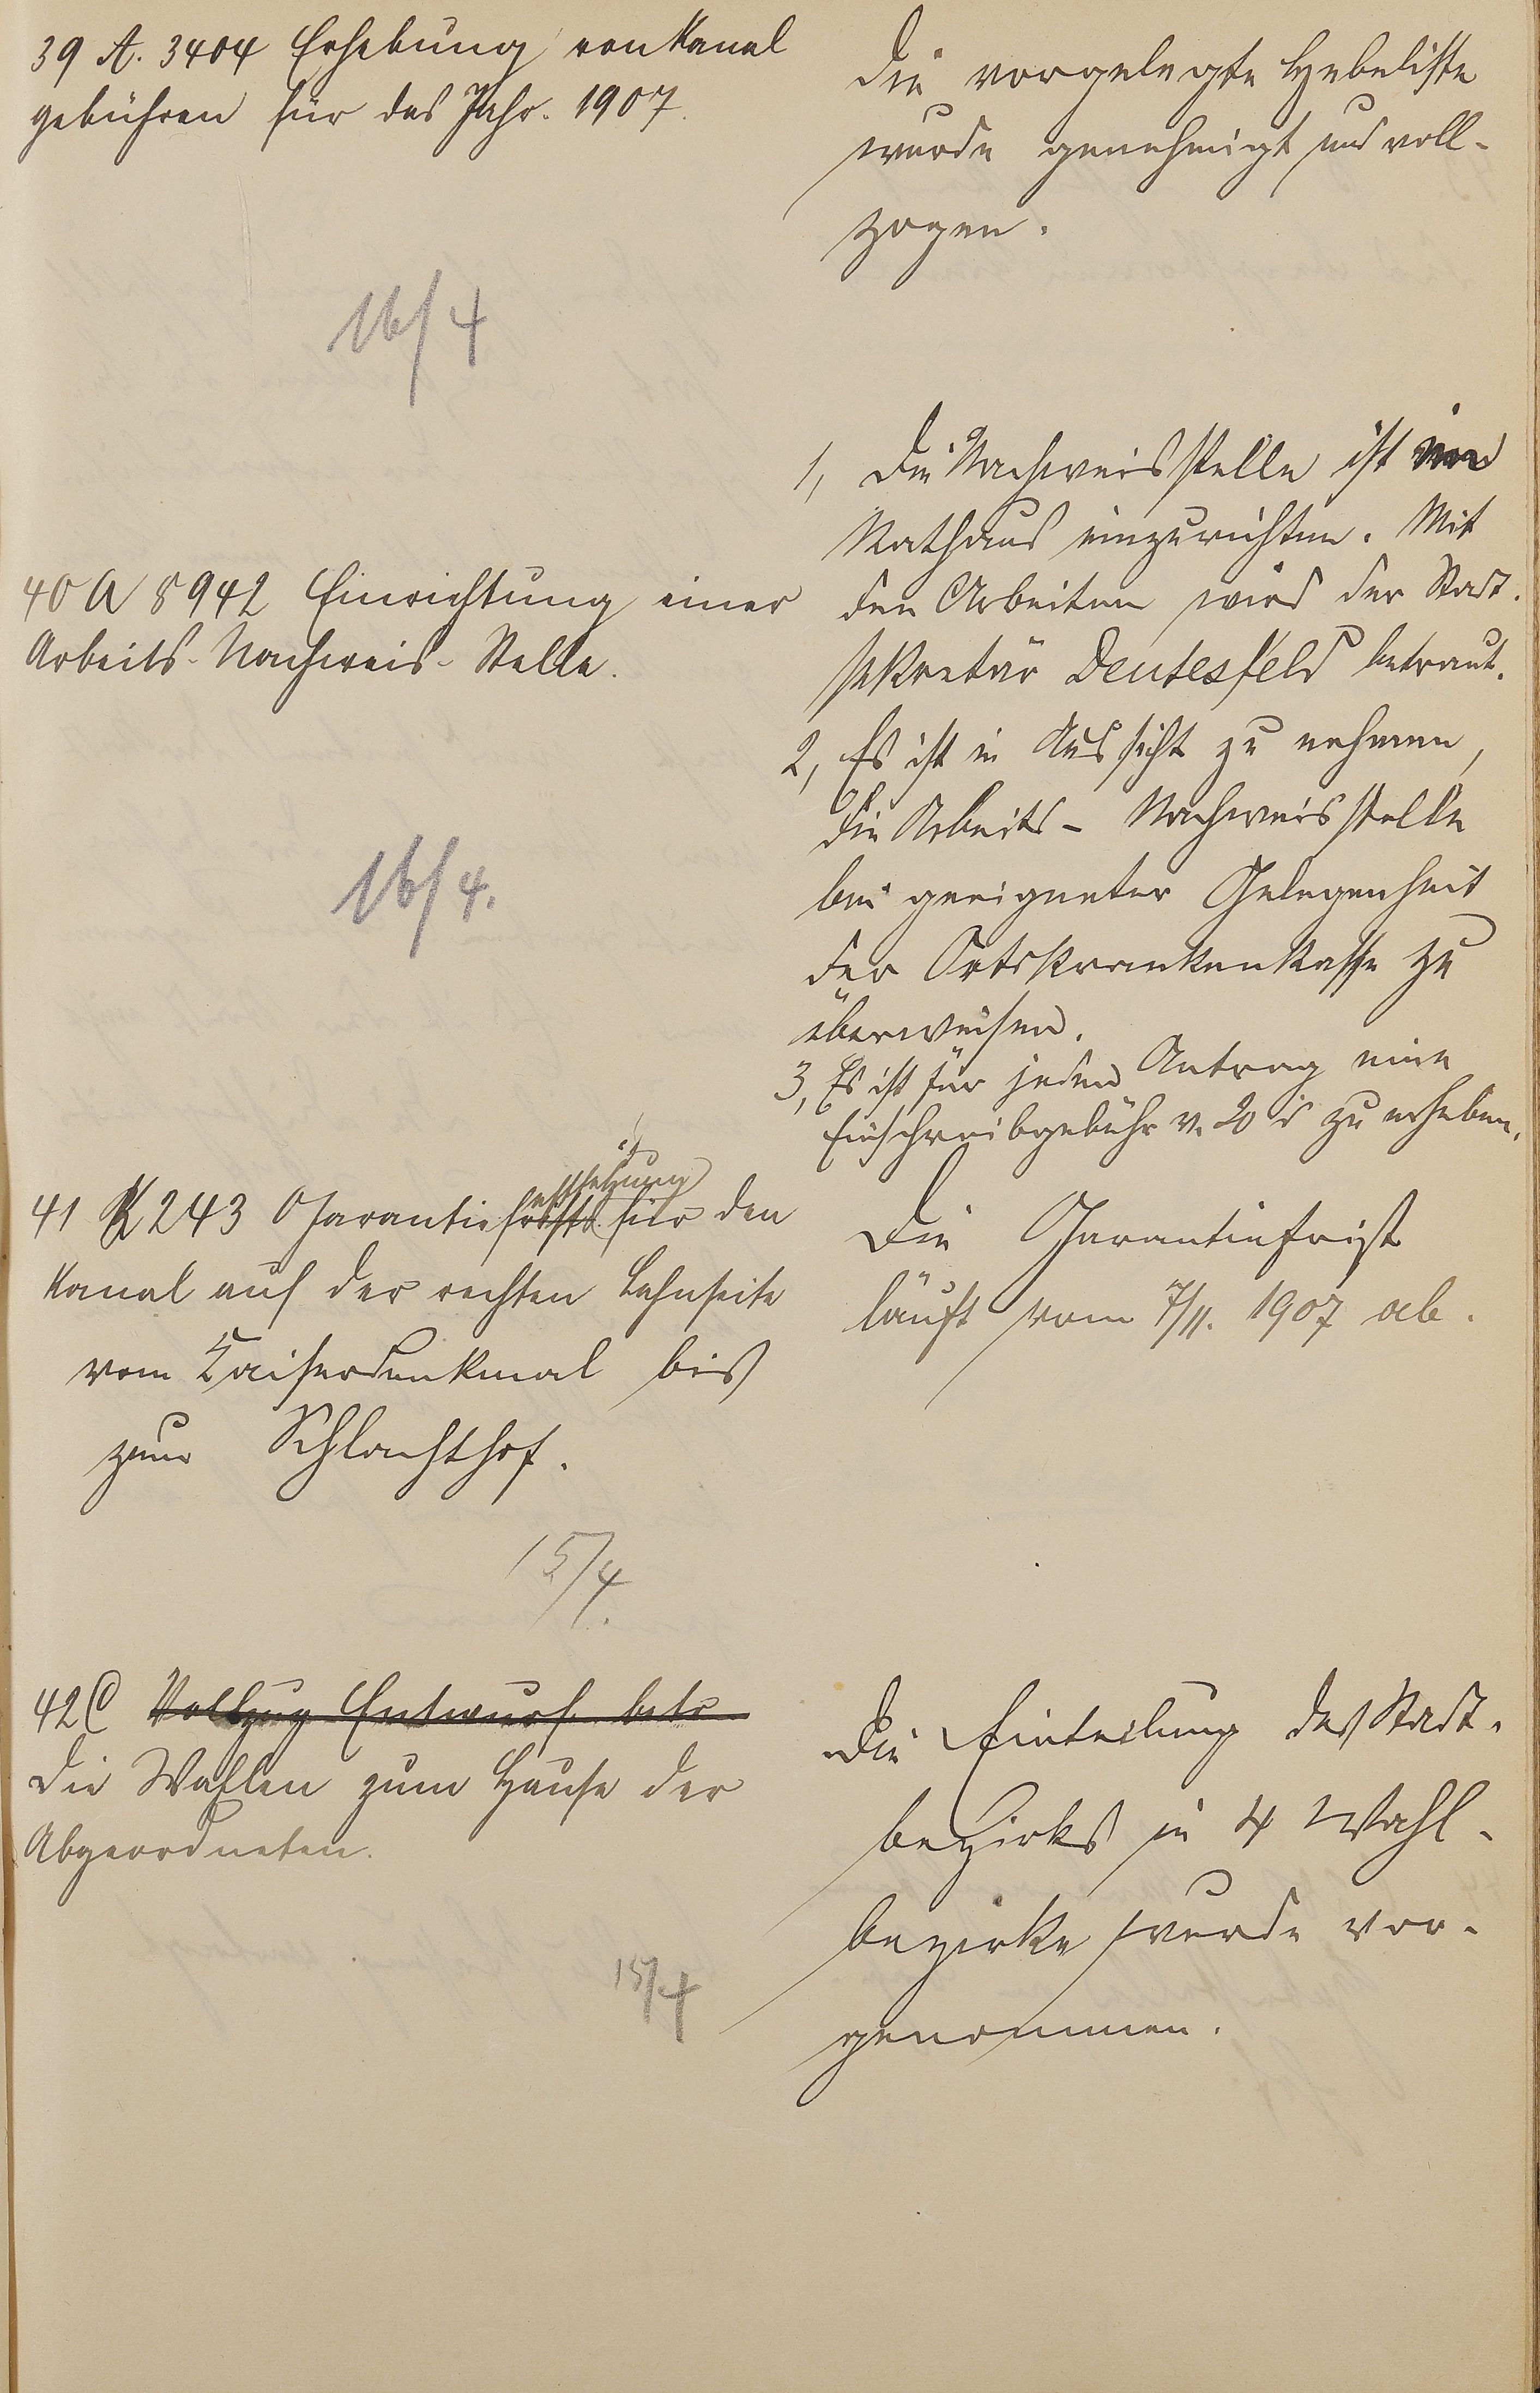 39 A. 3404 Erhebung von Kanal
gebühren für das Jahr. 1907.
Die vorgelegte Hebeliste
wurde genehmigt und voll-
zogen.
16/4
40 A 8942 Einrichtung einer
Arbeits-Nachweis-Stelle.
1, Die Nachweisstelle ist im
Rathaus einzurichten. Mit
den Arbeiten wird der Stadt-
sekretär Deutesfeld betraut.
2, Es ist in Aussicht zu nehmen,
die Arbeits- Nachweisstelle
bei geeigneter Gelegenheit
der Ortskrankenkasse zu
überweisen.
3, Es ist für jeden Antrag eine
Einschreibgebühr v. 20 zu erheben.
16/4.
41 K 243 Garantiefrist für den
Kanal auf der rechten Lahnseite
vom Kaiserdenkmal bis
zum Schlachthof.
Die Garantiefrist
läuft vom 7/11. 1907 ab.
15/4.
42 C Vollzug Entwurf betr
die Wahlen zum Hause der
Abgeordneten.
Die Einteilung des Stadt-
bezirks in 4 Wahl-
bezirke wurde vor-
genommen.
15/4